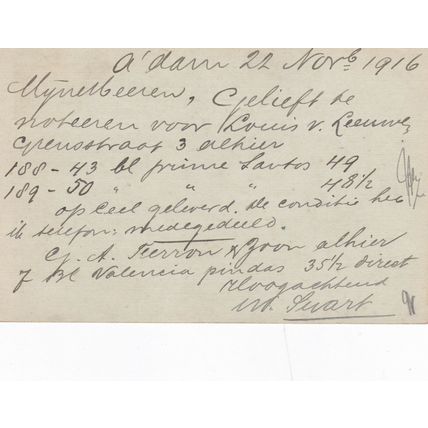 A'dam 22 Novb 1916
Mijne Heeren, Gelieft te
noteeren voor Louis v. Leeuwe,
Grensstraat 3 alhier
188 - 43 bl prime Santos 49
189 - 50 " " " 48 1/2
op ceel geleverd. De conditie heb
ik telefon: medegedeeld.
G. A. Terron & Zoon alhier
7 bl Valencia pindas 35 1/2 direct
Hoogachtend
Swart